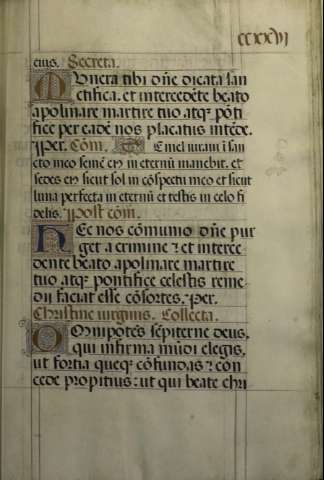 ccxxvi
eius. Secreta.
Munera tibi dñe dicata san
ctifica. et intercedẽte beato
apolinare martire tuo atqꝫ põti
fice per eadẽ nos placatus intẽde.
per. Cõm. Semel iuraui ĩ san
cto meo semẽ eiꝰ in eternũ manebit. et
sedes eiꝰ sicut sol in cõspectu meo et sicut
luna perfecta in eternũ et testis in celo fi
delis. post cõm.
Hec nos cõmunio dñe pur
get a crimine ⁊ et interce
dente beato apolinare martire
tuo atqꝫ pontifice celestis reme
dii faciat esse cõsortes. per.
Christine uirginis. Collecta.
Omnipotẽs sẽpiterne deus,
qui infirma mũdi elegis,
ut fortia queqꝫ cõfundas ⁊ con
cede propitius: ut qui beate chri